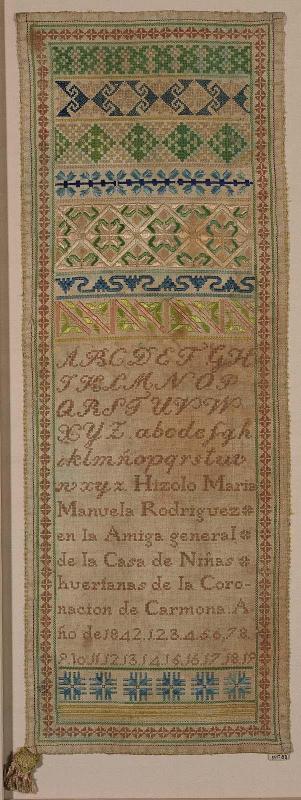 A B C D E F G H
I K L M N O P
Q R S T U V W
X Y Z. a b c d e f g h
i k l m ñ o p q r s t u v
w x y z Hizolo Maria
Manuela Rodriguez
en la Amiga general
de la Casa de Niñas
huerfanas de la Coro-
nacion de Carmona. A
ño de 1842. 1. 2. 3. 4. 5. 6. 7. 8.
9. 10. 11. 12. 13. 14. 15. 16. 17. 18. 19